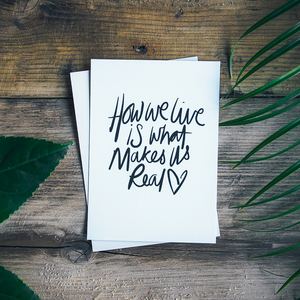 How we live
is what
Makes us
Real